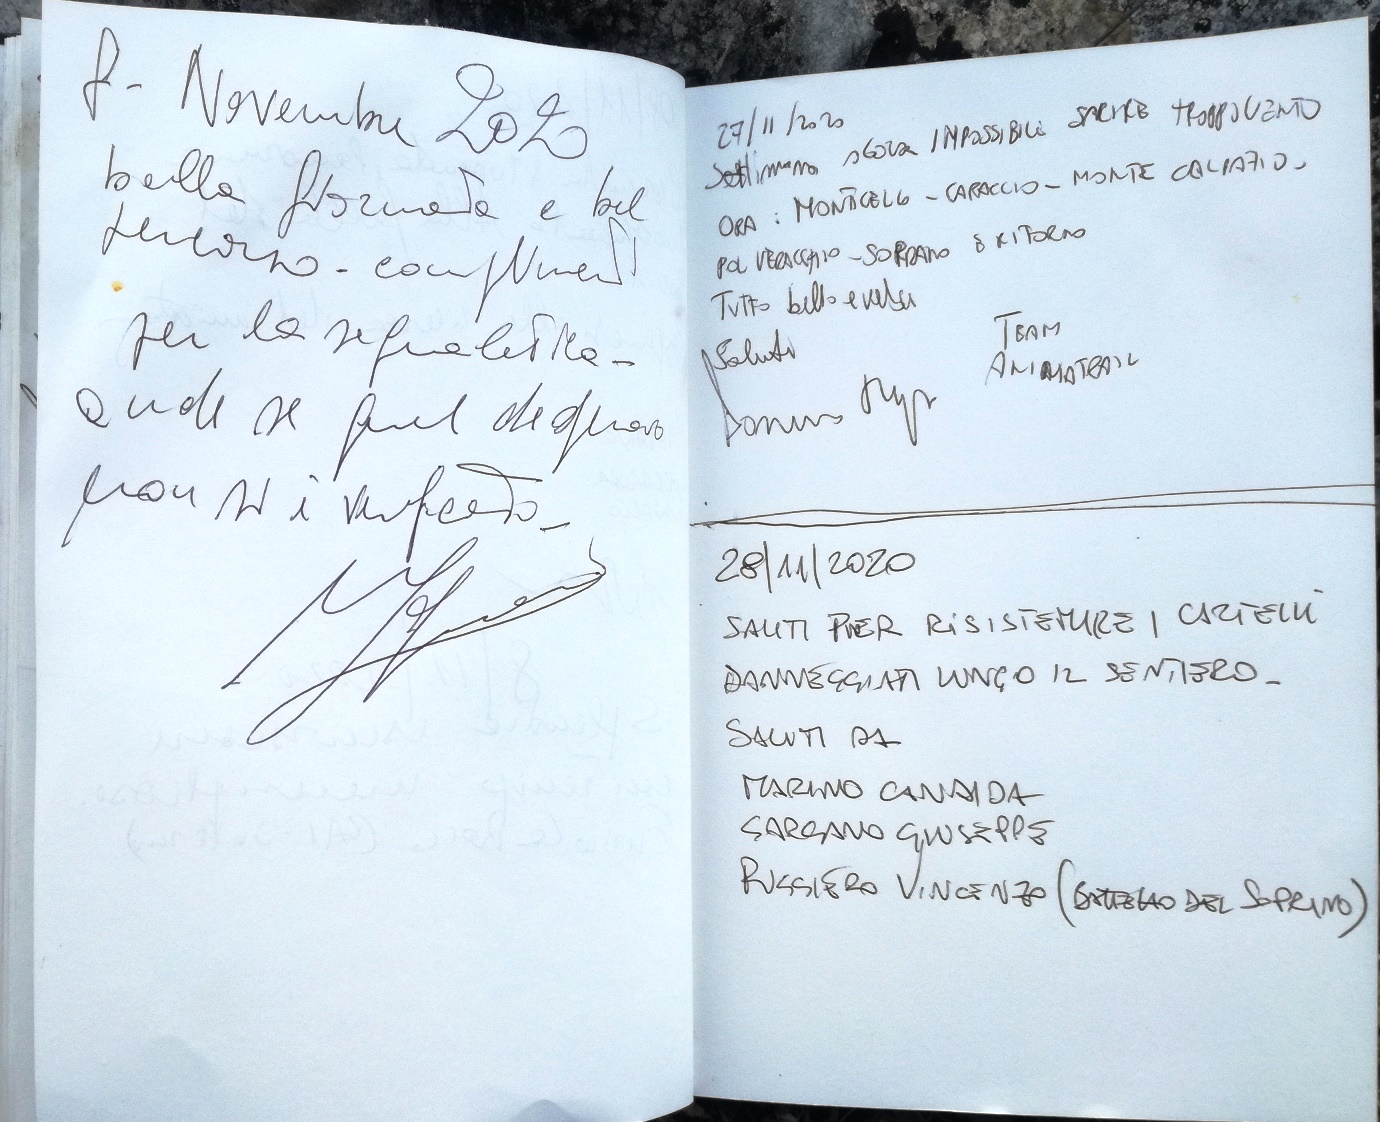 8 - Novembre 2020
bella giornata e bel
percorso - complimenti
per la segnaletica -
anche se quel
non si è verificato -
27/11/2020
Settimana scorsa IMPOSSIBILE SALIRE TROPPO VENTO
ORA : MONTICELLO - CARACCIO - MONTE CALVATIO -
POLVERACCHIO - SOPRANO E RITORNO
TUTTO bello e
Saluti
TEAM
ANIMATRAIL
28/11/2020
SALITI PER RISISTEMARE I CARTELLI
DANNEGGIATI LUNGO IL SENTIERO -
SALUTI DA
MARINO CANDIDA
GARGANO GIUSEPPE
RUGGIERO VINCENZO ( DEL SOPRANO)